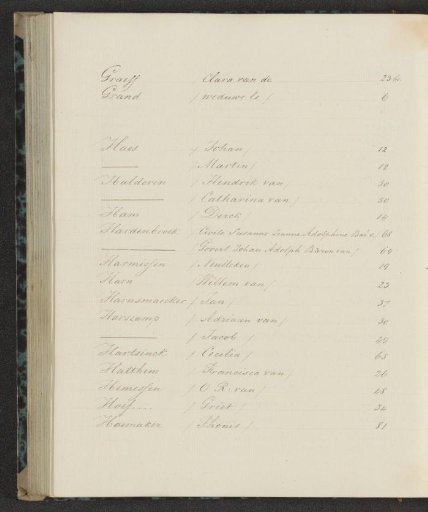 Graeff / Clara van de 23
Grand / weduwe le / 6
Haes / Johan / 12
——— / Martin / 12
Halderen / Hendrik van / 30
——— / Catharina van / 30
Ham / Derck / 19
Hardenbroek / Susanna Adolphine 68
——— / Johan Adolph Baron van / 69
Harmissen / 19
Harn / Willem van / 23
Harnsmaecker / Jan / 37
Harscamp / Adriaan van / 30
——— / Jacob / 49
Hartsinck / Cecilia / 65
Hatthem / Francisca van / 26
Hemessen / O. R. van / 18
Hoef.... / Griet / 34
Hoemaker / Thonis / 81